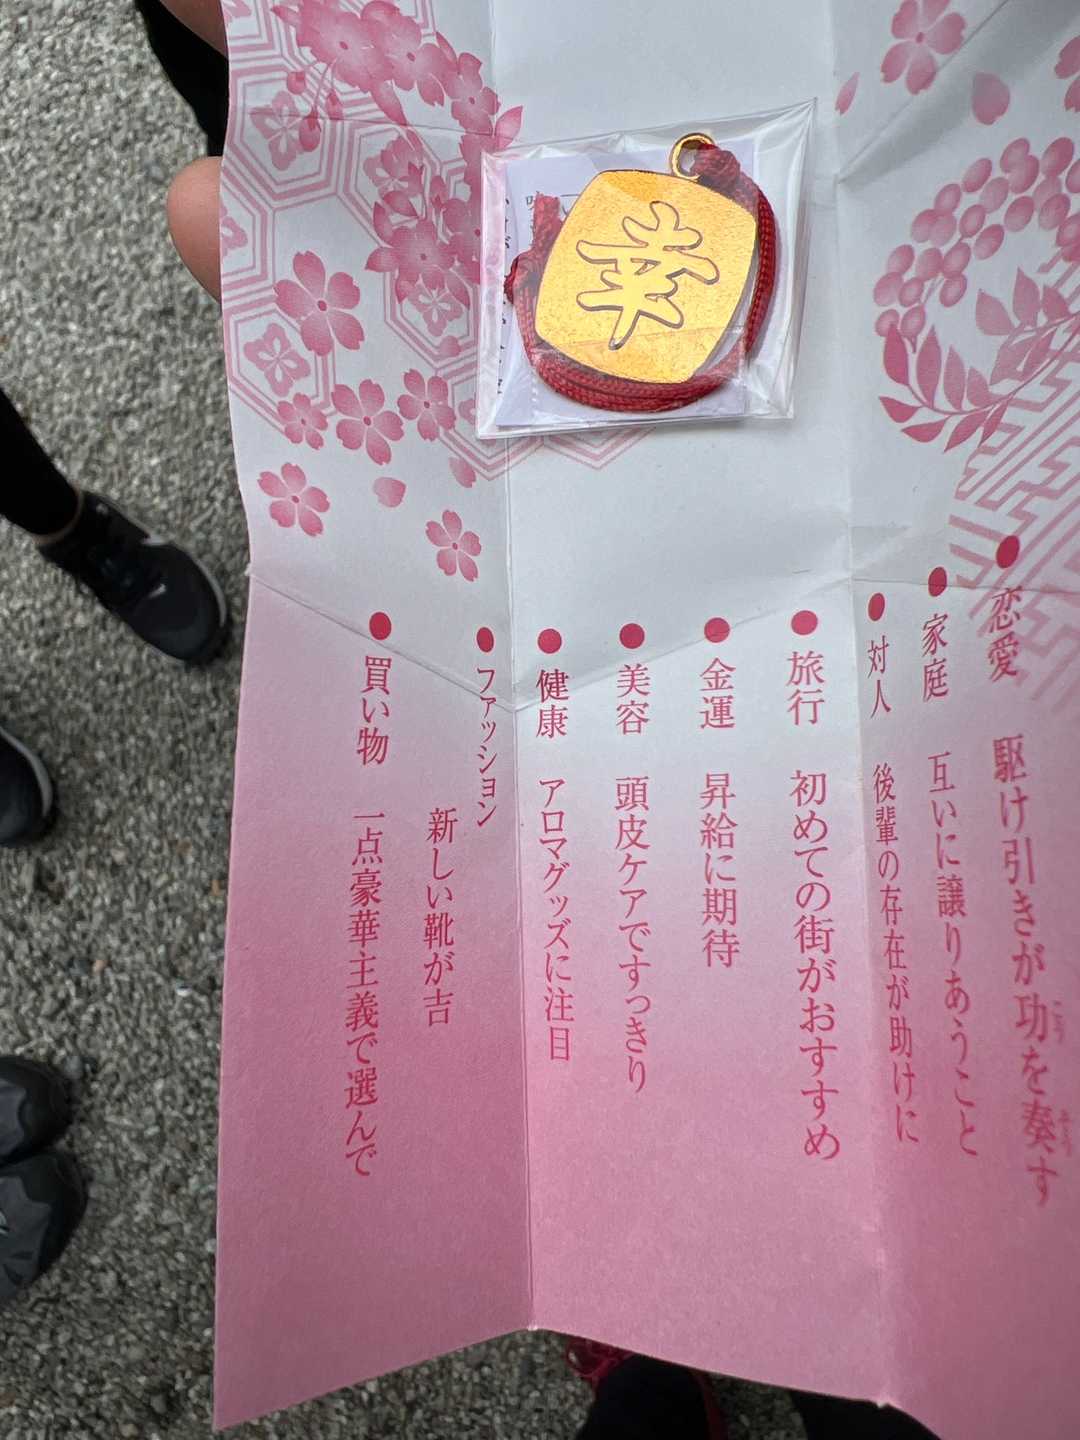 幸
恋愛 駆け引きが功を奏す
家庭 互いに譲りあうこと
対人 後輩の存在が助けに
旅行 初めての街がおすすめ
金運 昇給に期待
美容 頭皮ケアですっきり
健康 アロマグッズに注目
ファッション
新しい靴が吉
買い物 一点豪華主義で選んで